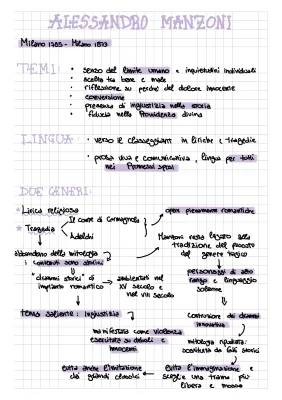 ALESSANDRO MANZONI
Milano 1785 - Milano 1873
TEMI:
• senso del limite umano e inquietudini individuali
• scelta tra bene e male
• riflessione su perché del dolore innocente
• conversione
• presenza di ingiustizia nella storia
• fiducia nella Provvidenza divina
LINGUA:
• verso il classeggiare in liriche e tragedie
• prosa viva e comunicativa, lingua per tutti
nei Promessi Sposi
DUE GENERI:
★ Lirica religiosa
★ Tragedia
Il conte di Carmagnola
Adelchi
opere pienamente romantiche
Manzoni resta legato alla
tradizione del passato
del genere tragico
abbandono della mitologia
contenuti sono storici
personaggi di alto
rango e linguaggio
solenne
"drammi storici" di
impianto romantico
ambientati nel
XV secolo e
nel VIII secolo
tema saliente: ingiustizia
costruzione dei drammi
innovativa
manifestata come violenza
esercitata su deboli e
innocenti
mitologia rifiutata:
sostituita da fatti storici
evita anche l'imitazione
dei grandi classici
evita l'immaginazione e
sceglie una trama più
libera e mossa